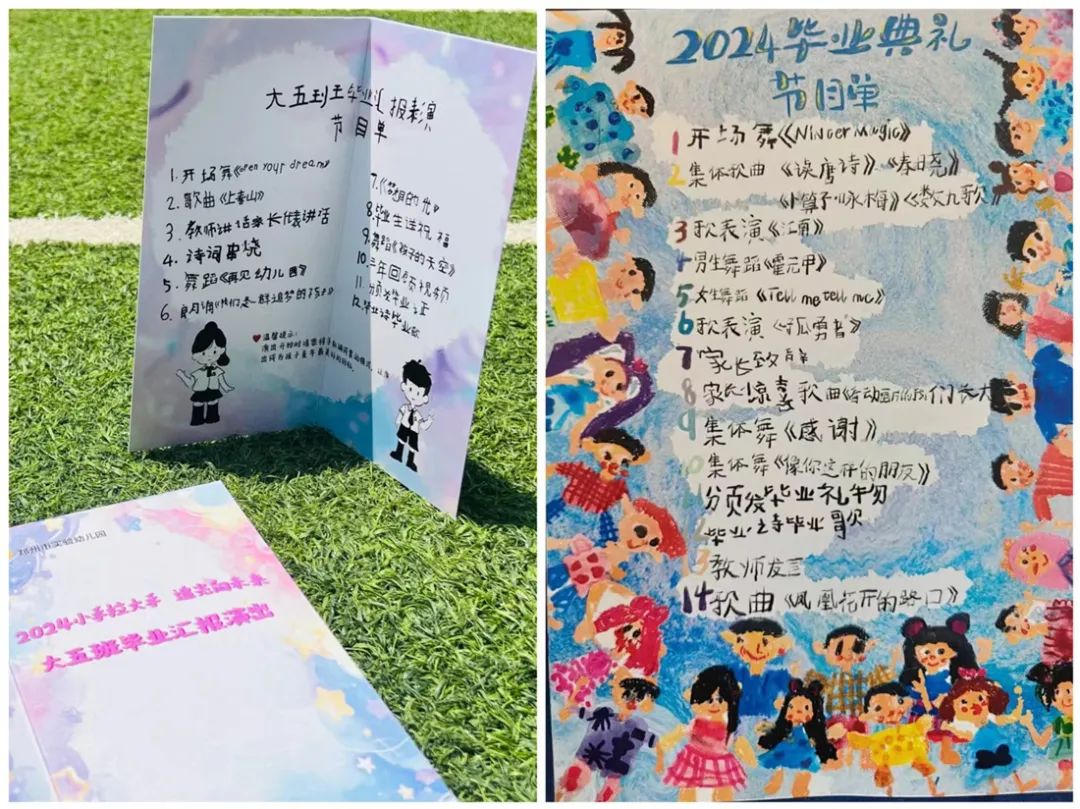 大五班毕业汇报表演
节目单
1. 开场舞《open your dream》
2. 歌曲《上春山》
3. 教师讲话家长代表讲话
4. 诗词串烧
5. 舞蹈《再见幼儿园》
6. 朗诵《我们是一群追梦的孩子》
7.《梦想的光》
8. 毕业生送祝福
9. 舞蹈《孩子的天空》
10. 三年回顾视频
11. 颁发毕业证
12. 毕业诗毕业歌
温馨提示:
郑州市实验幼儿园
2024小手拉大手 追光向未来
大五班毕业汇报演出
2024毕业典礼
节目单
1 开场舞《Ninger Magic》
2 集体歌曲《读唐诗》《春晓》
《卜算子·咏梅》《数九歌》
3 歌表演《江南》
4 男生舞蹈《霍元甲》
5 女生舞蹈《Tell me tell me》
6 歌表演《孤勇者》
7 家长致辞
8 家长惊喜歌曲《会动画的我们长大》
9 集体舞《感谢》
10 集体舞《像你这样的朋友》
11 颁发毕业礼物
12 毕业诗毕业歌
13 教师发言
14 歌曲《凤凰花开的路口》